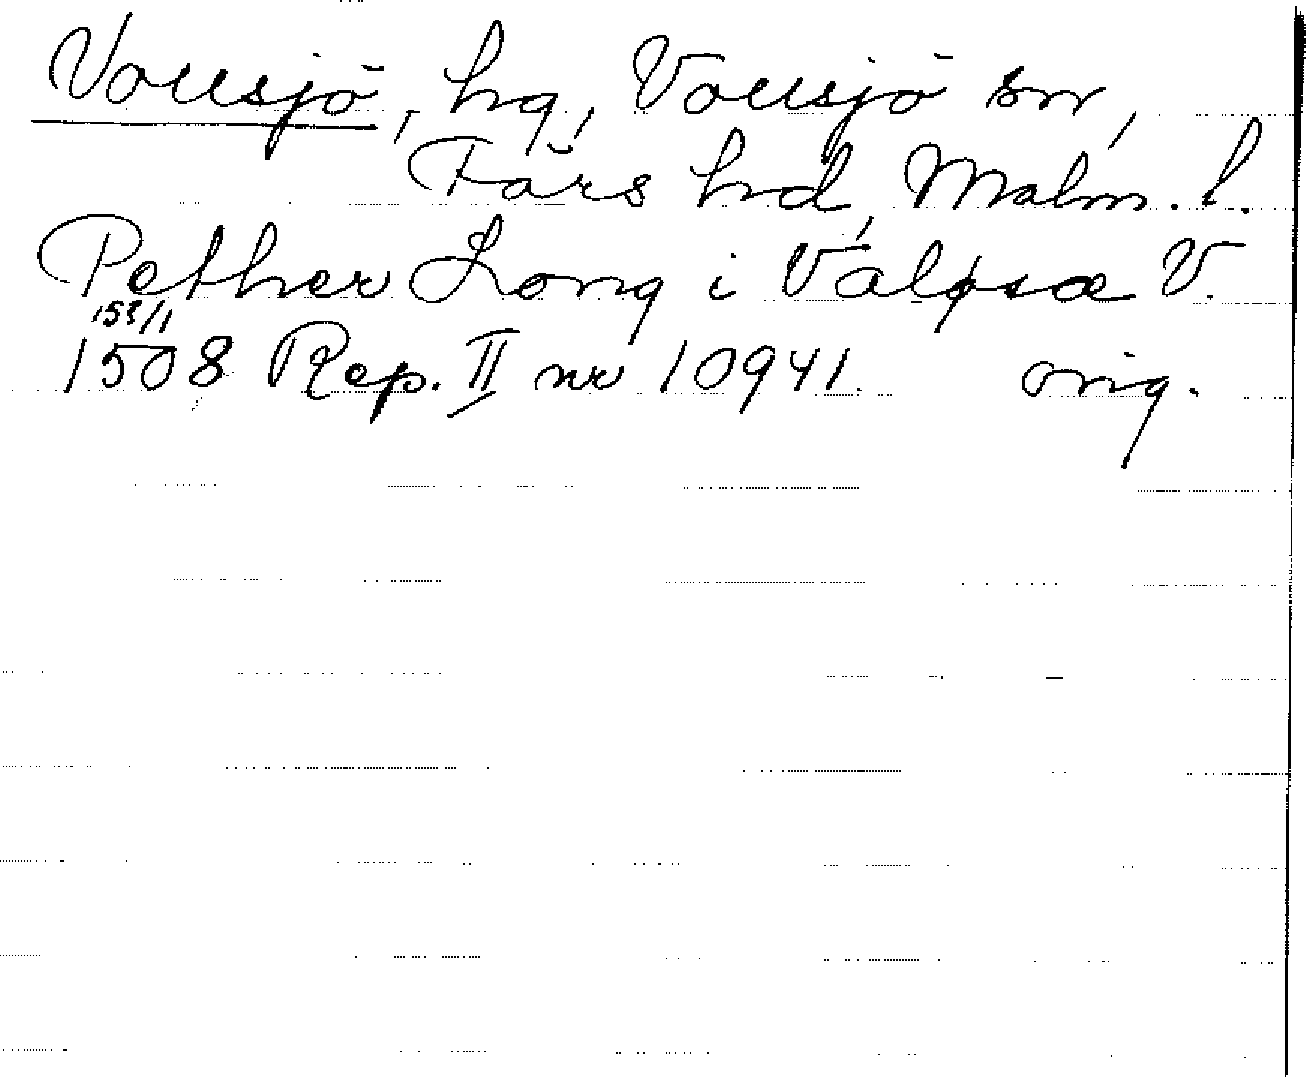 Vollsjö, hg, Vollsjö sn,
Färs hd, Malm. l.
Pether Long i Valøsæ V.
1508 Rep. II nr 10941. orig.